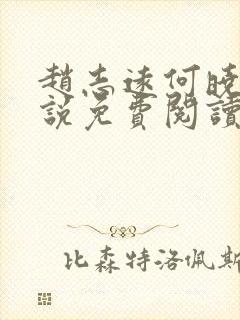 趙志遠何曉
說免費閱讀
比森特洛佩斯